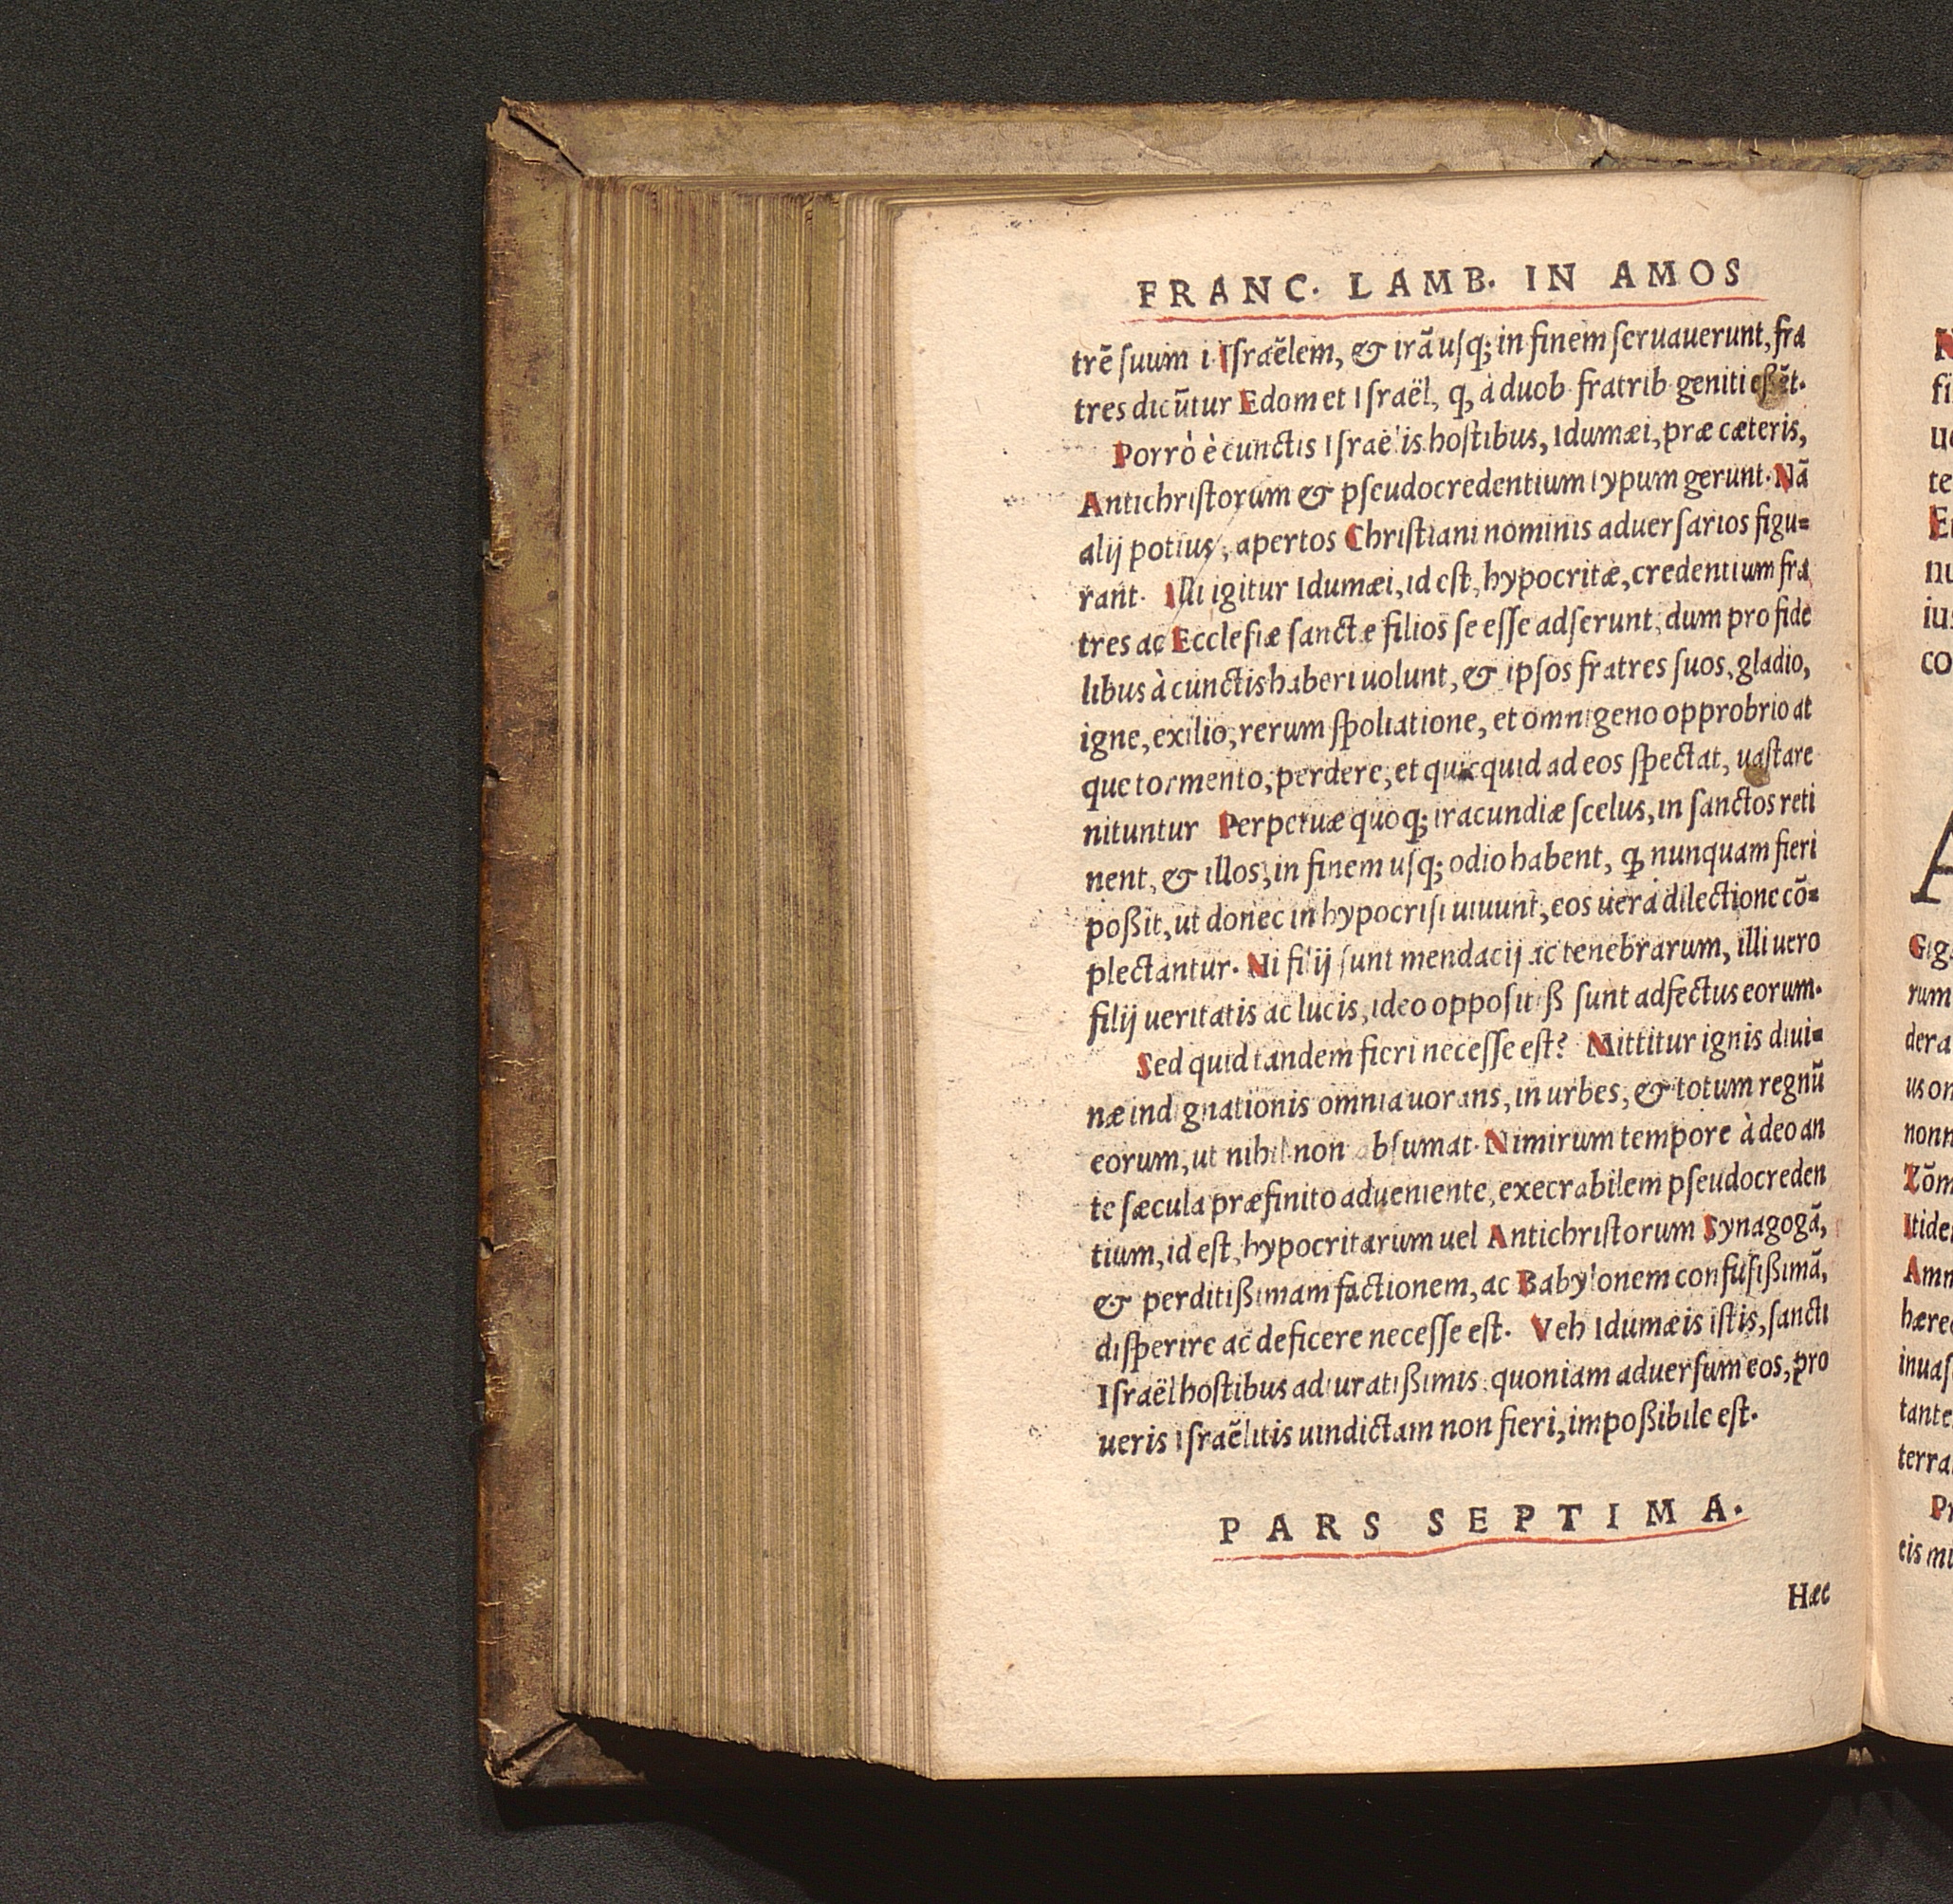 FRANC. LAMB. IN AMOS
trē suum i. Israēlem, & irā usq; in finem seruauerunt, fra
tres dicūtur Edom et Israël, q, à duob. fratrib. geniti eßēt.
Porrò è cunctis Israëlis hostibus, Idumæi, præ cæteris,
Antichristorum & pseudocredentium typum gerunt. Nā
alij potius, apertos Christiani nominis aduersarios figu=
rant. Illi igitur Idumæi, id est, hypocritæ, credentium fra
tres ac Ecclesiæ sanctæ filios se esse adserunt, dum pro fide
libus à cunctis haberi uolunt, & ipsos fratres suos, gladio,
igne, exilio, rerum spoliatione, et omnigeno opprobrio at
que tormento, perdere, et quicquid ad eos spectat, uastare
nituntur Perpetuæ quoq; iracundiæ scelus, in sanctos reti
nent, & illos, in finem usq; odio habent, qp nunquam fieri
poßit, ut donec in hypocrisi uiuunt, eos uera dilectione cō=
plectantur. Ni filij sunt mendacij ac tenebrarum, illi uero
filij ueritatis ac lucis, ideo oppositiß sunt adfectus eorum.
Sed quid tandem fieri necesse est? Mittitur ignis diui=
næ indignationis omnia uorans, in urbes, & totum regnū
eorum, ut nihil non absumat. Nimirum tempore à deo an
te sæcula præfinito adueniente, execrabilem pseudocreden
tium, id est, hypocritarum uel Antichristorum Synagogā,
& perditißimam factionem, ac Babylonem confusißimā,
disperire ac deficere necesse est. Veh Idumæis istis, sancti
Israël hostibus adiuratißimis, quoniam aduersum eos, pro
ueris Israēlitis uindictam non fieri, impoßibile est.
PARS SEPTIMA.
Hæc